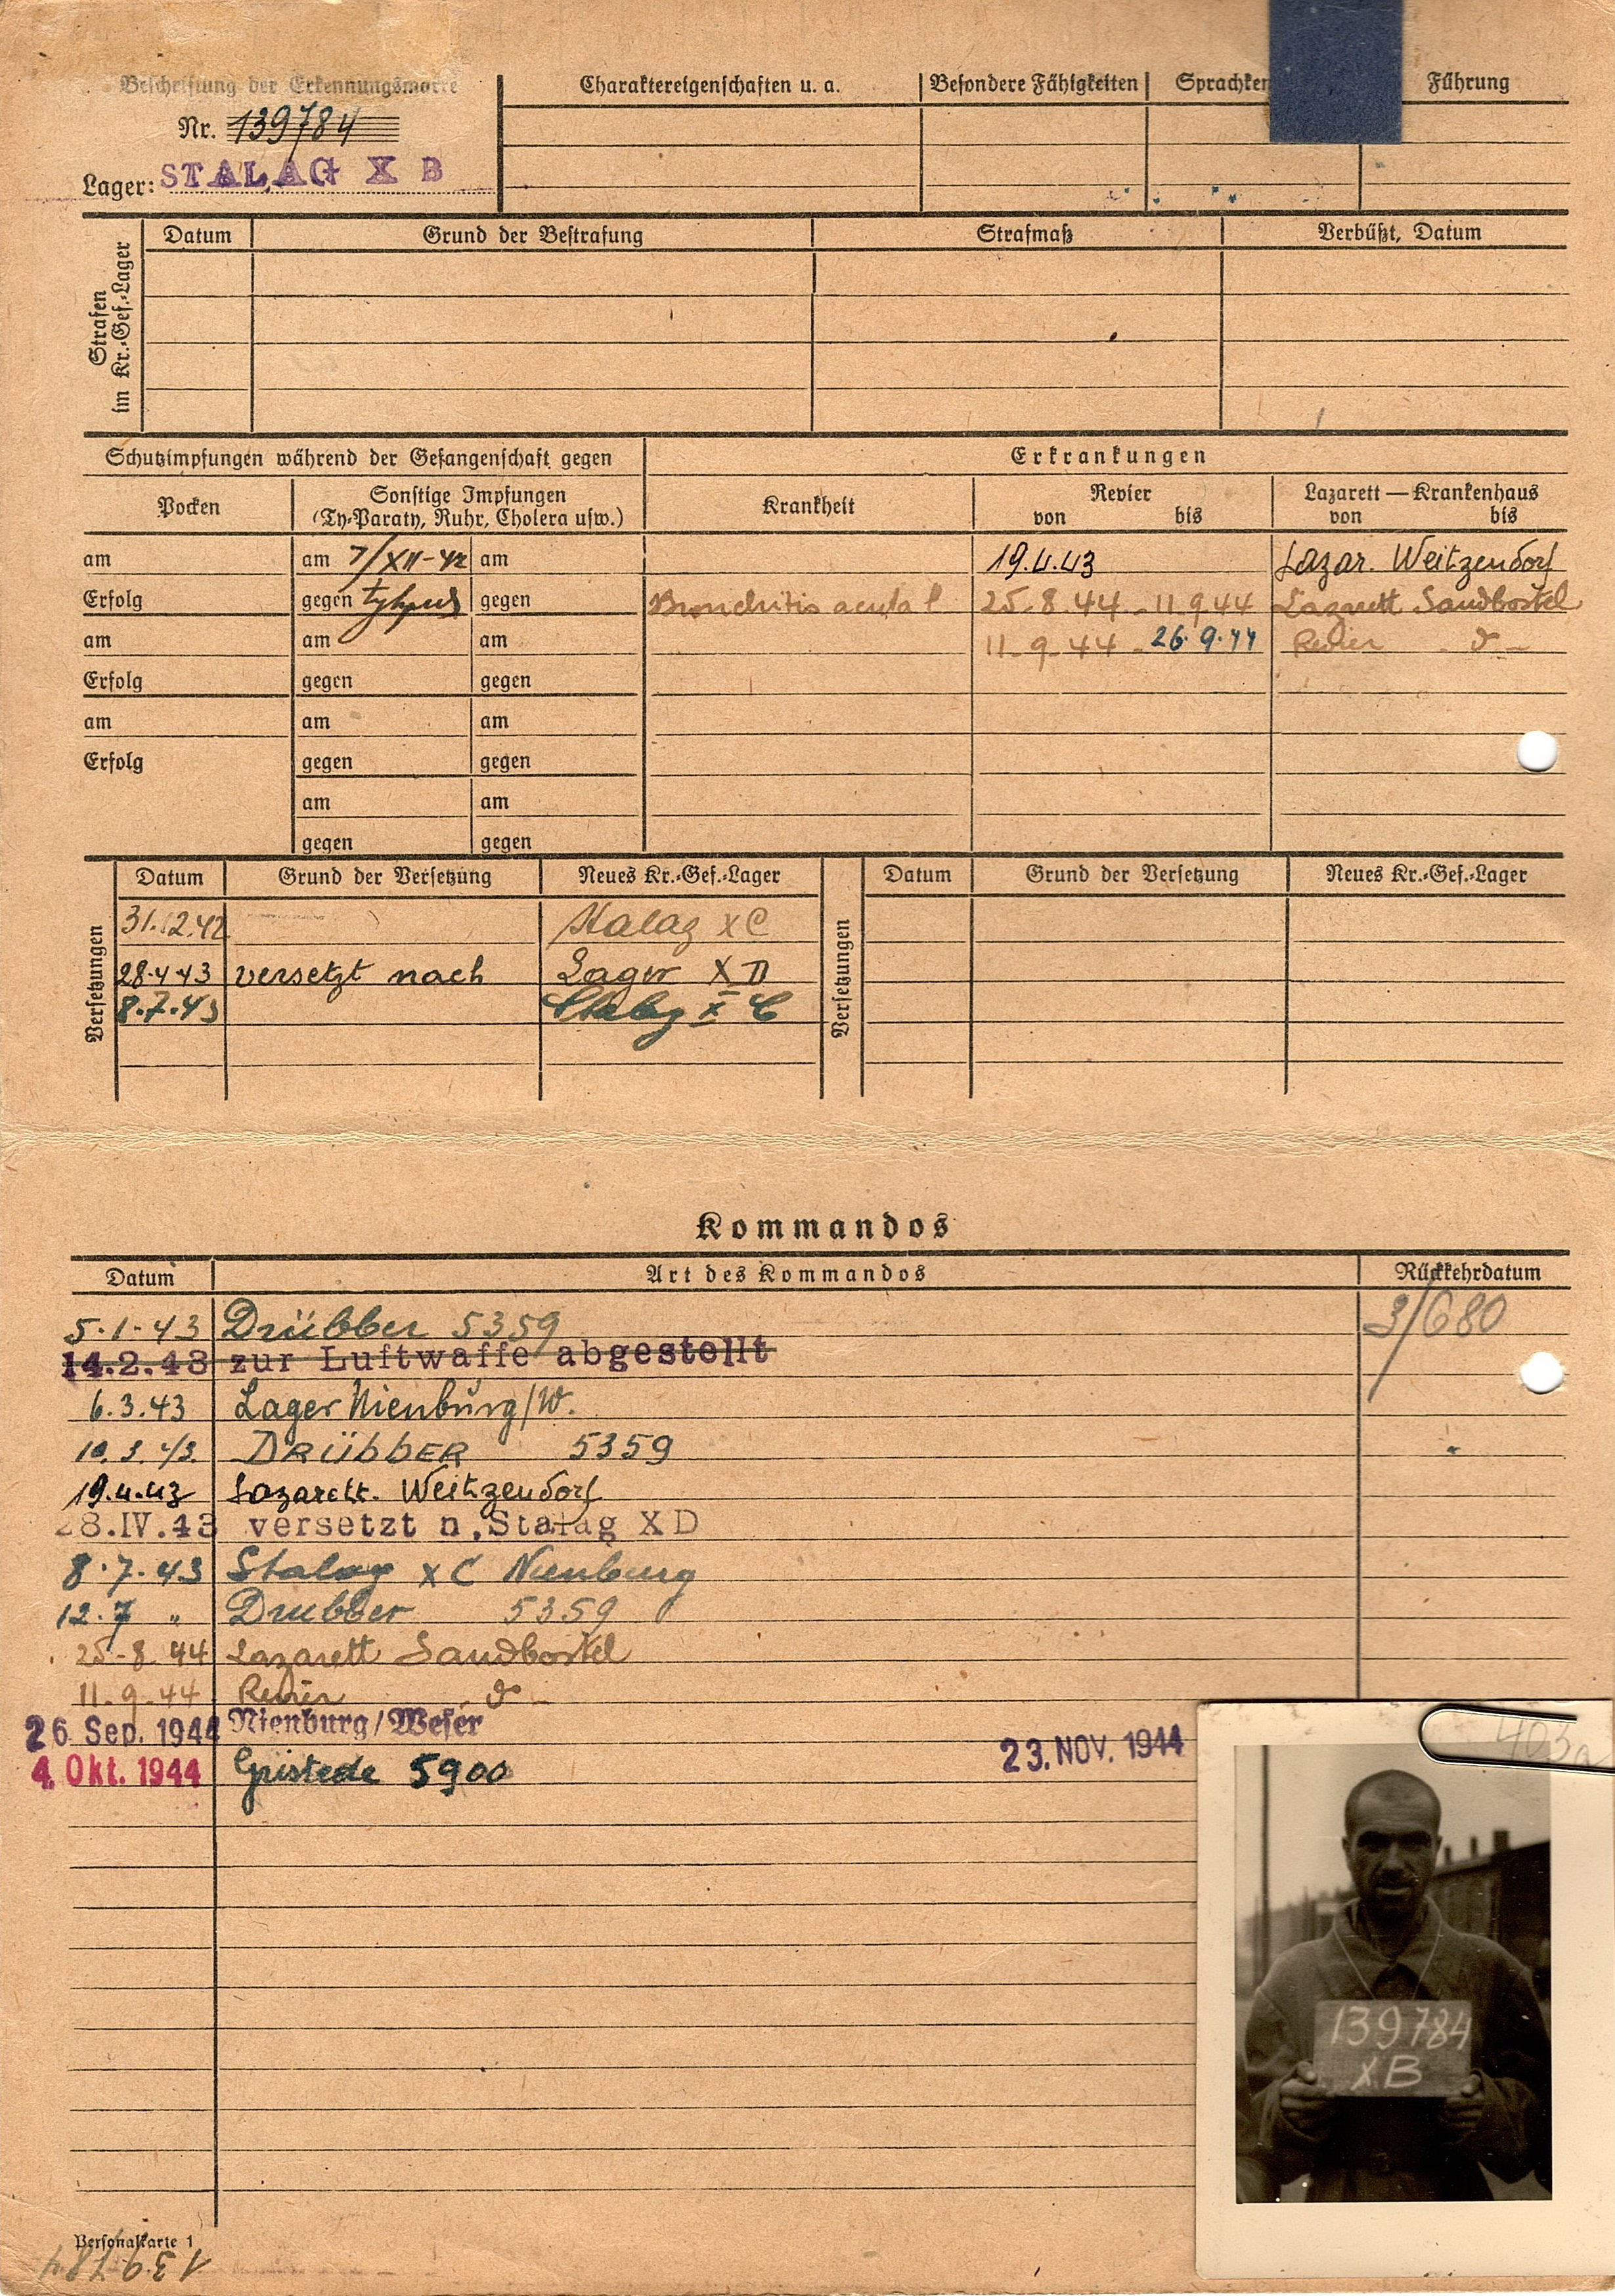 Beschriftung der Erkennungsmarke
Nr. 139784
Lager: STALAG X B
Charaktereigenschaften u. a. Besondere Fähigkeiten Sprachken Führung
Strafen im Kr.-Gef.-Lager
Datum Grund der Bestrafung Strafmaß Verbüßt, Datum
Schutzimpfungen während der Gefangenschaft gegen Erkrankungen
Pocken Sonstige Impfungen (Ty-Paraty, Ruhr, Cholera usw.) Krankheit Revier von bis Lazarett — Krankenhaus von bis
am am 7/XII-42 am 19.4.43 Lazar. Weitzendorf
Erfolg gegen typhus gegen Bronchitis acuta 25.8.44 - 11.9.44 Lazarett Sandbostel
am am am 11-9-44 - 26.9.44 Revier
Erfolg gegen gegen
am am am
Erfolg gegen gegen
am am
gegen gegen
Versetzungen Datum Grund der Versetzung Neues Kr.-Gef.-Lager Versetzungen Datum Grund der Versetzung Neues Kr.-Gef.-Lager
31.12.42 Stalag X C
28.4.43 versetzt nach Lager X D
8.7.43 Stalag X C
Kommandos
Datum Art des Kommandos Rückkehrdatum
5.1.43 Drübber 5359 3/680
14.2.43 zur Luftwaffe abgestellt
6.3.43 Lager Nienburg/W.
10.3.43. DRÜBBER 5359
19.4.43 Lazarett. Weitzendorf
28.IV.43 versetzt n. Stalag X D
8.7.43 Stalag X C Nienburg
12.7 " Drubber 5359
25-8 44 Lazarett Sandbostel
11-9-44 Revier
26. Sep. 1944 Nienburg/Weser
4. Okt. 1944 Gristede 5900 23. NOV. 1944
403a
139784
X.B
Personalkarte 1
139784